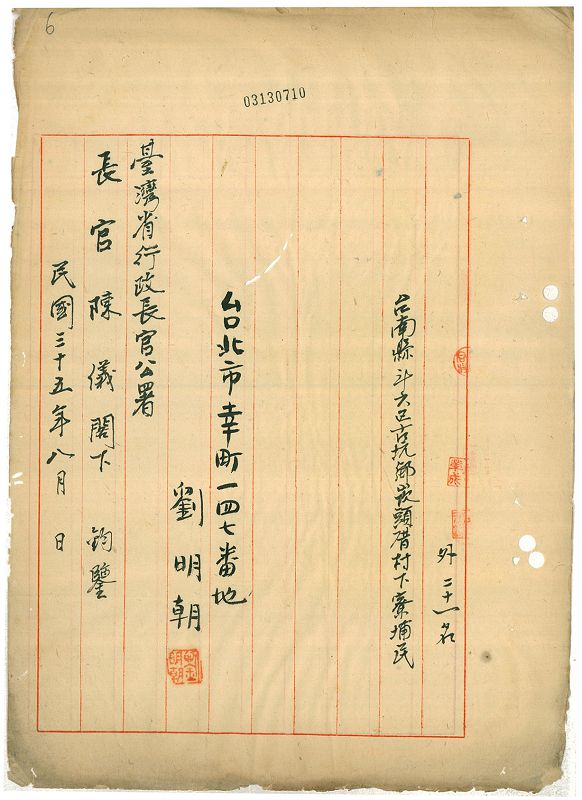 6
03130710
台南縣斗六區古坑鄉崁頭厝村下寮埔民
外二十一名
台北市幸町一四七番地
劉明朝
劉明朝
臺灣省行政長官公署
長官陳儀閣下 鈞鑒
民國三十五年八月 日